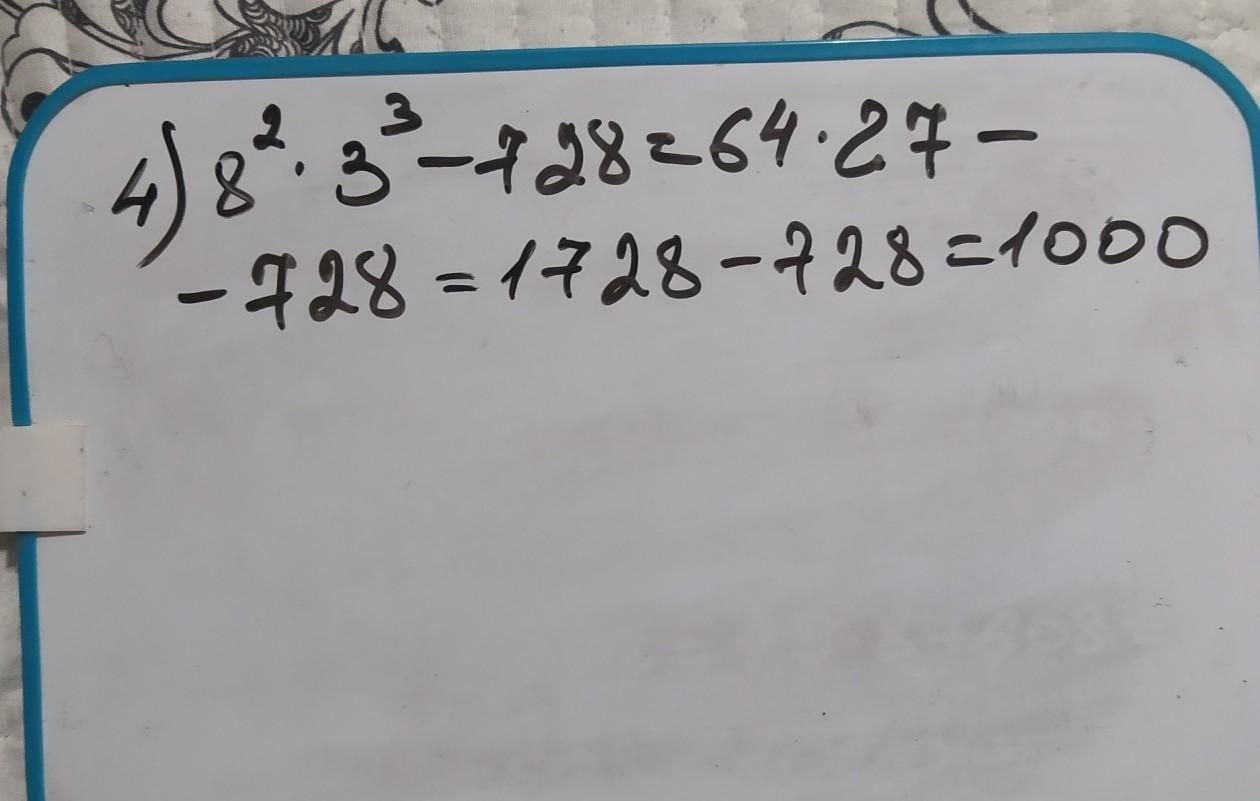 4) 8² · 3³ - 728 = 64 · 27 -
- 728 = 1728 - 728 = 1000